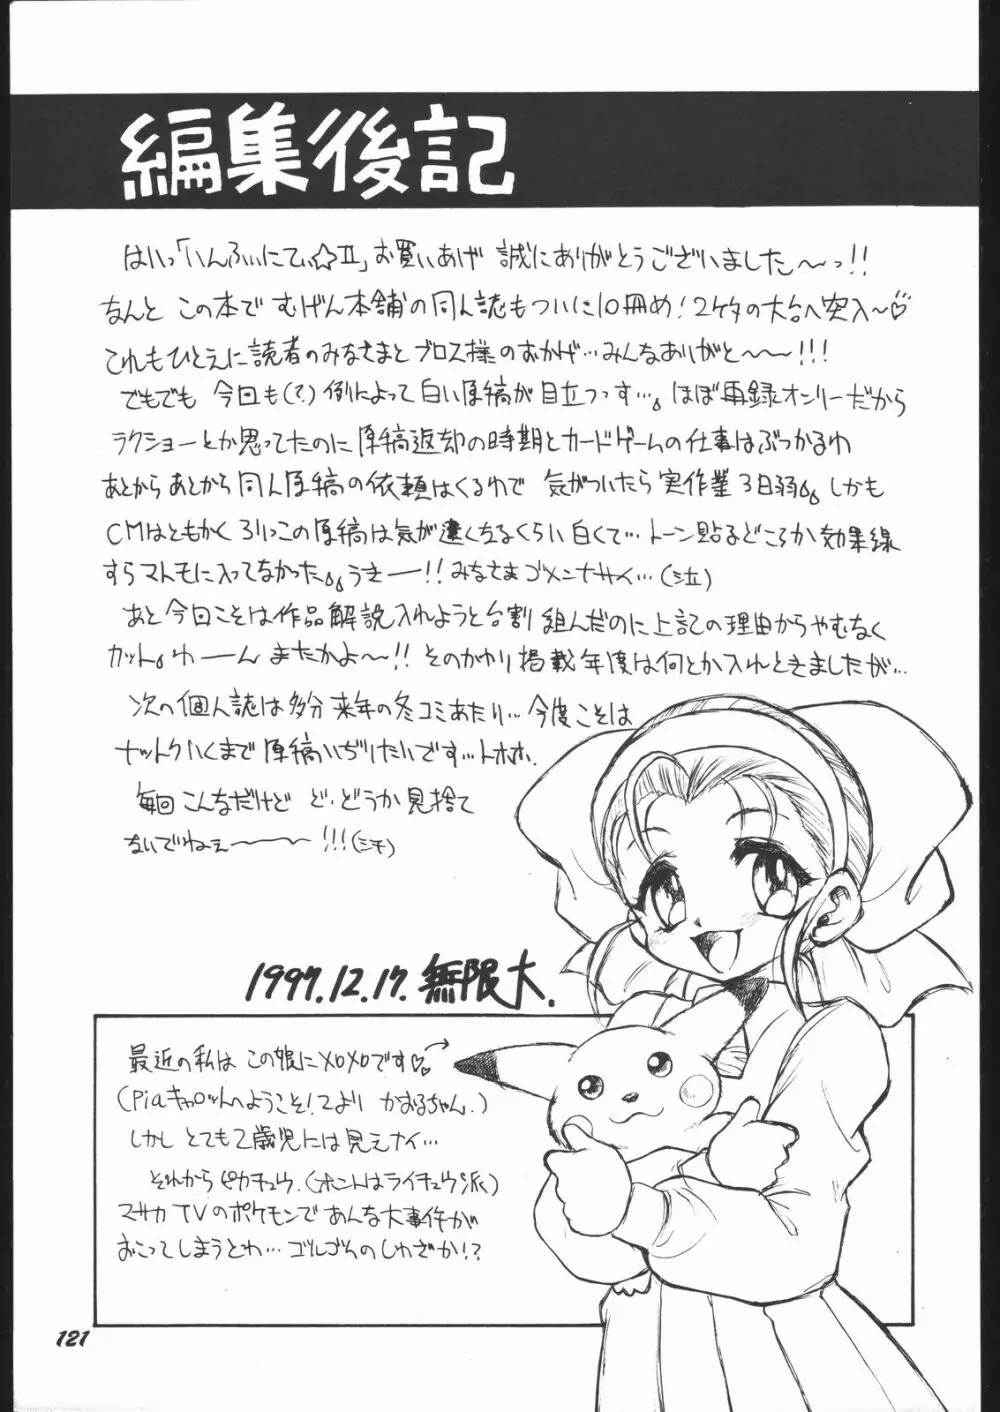 編集後記
はいっ「いんふぃにてぃ☆Ⅱ」お買いあげ 誠にありがとうございました〜っ!!
なんと この本で むげん本舗の同人誌もついに10冊め!2ケタの大台へ突入〜♡
これもひとえに読者のみなさまとブロス様のおかげ…みんなありがと〜〜!!!
でもでも 今回も(?)例によって白い原稿が目立つっす…。ほぼ再録オンリーだから
ラクショーとか思ってたのに原稿返却の時期とカードゲームの仕事はぶつかるわ
あとからあとから同人原稿の依頼はくるわで 気がついたら実作業3日弱。。しかも
CMはともかく ろりっこの原稿は気が遠くなるくらい白くて…トーン貼るどころか効果線
すらマトモに入ってなかった。。うきー!!みなさまゴメンナサイ…(泣)
あと今回こそは作品解説入れようと台割組んだのに上記の理由からやむなく
カット。わーん またかよ〜!!そのかわり掲載年度は何とか入れときましたが…
次の個人誌は多分来年の冬コミあたり…今度こそは
ナットクいくまで原稿いぢりたいです…トホホ.
毎回こんなだけど ど・どうか見捨て
ないでねぇ〜〜!!!(汗)
1997.12.17.無限大.
最近の私は この娘にメロメロです♡♡
(Piaキャロットへようこそ!2より かおるちゃん.)
しかし とても2歳児には見えナイ…
それからピカチュウ.(ホントはライチュウ派)
マサカTVのポケモンであんな大事件が
おこってしまうとわ…ゴルゴムのしわざか!?
121